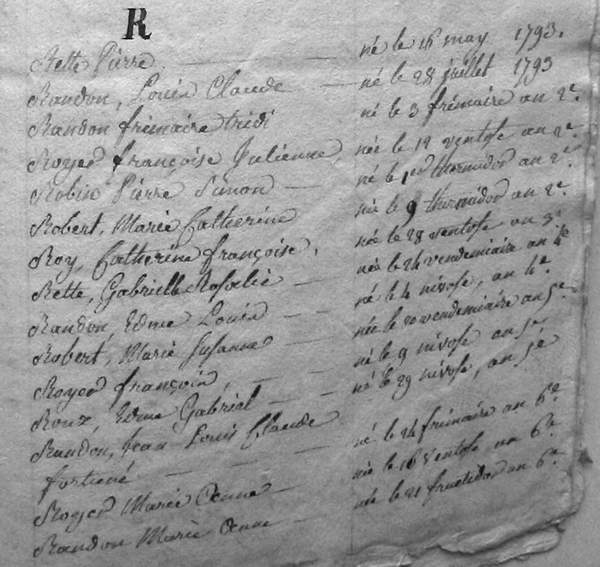 R
Rette Pierre né le 16 may 1793.
Randon, Louis Claude né le 28 juillet 1793
Randon frimaire tridi né le 3 frémaire an 2e.
Royer françoise Julienne, née le 12 ventose an 2e.
Robin Pierre Simon né le 1er thermidor an 2e.
Robert, Marie Catherine née le 9 thermidor an 2e.
Roy, Catherine françoise, née le 28 ventose an 3e.
Rette, Gabrielle Rosalie née le 24 vendemiaire an 4e
Randon, Edme Louis né le 4 nivose, an 4e.
Robert, Marie Susanne née le 10 vendemiaire an 5e
Royer françois né le 9 nivose an 5e
Roux, Edme Gabriel né le 29 nivose, an 5e
Randon, Jean Louis Claude
fortuné né le 24 frimaire an 6e
Royer Marie Anne née le 16 ventose an 6e.
Randon Marie Anne née le 21 fructidor an 6e.